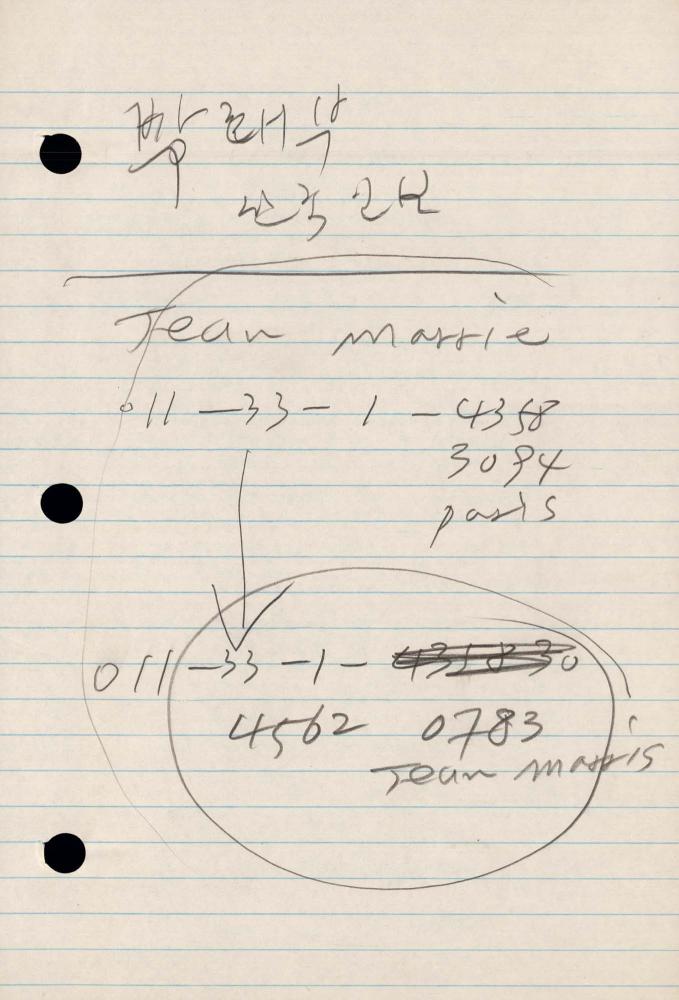 한국일보
Jean Marrie
011-33-1-4358
3094
paris
011-33-1-
4562 0783
Jean Marris